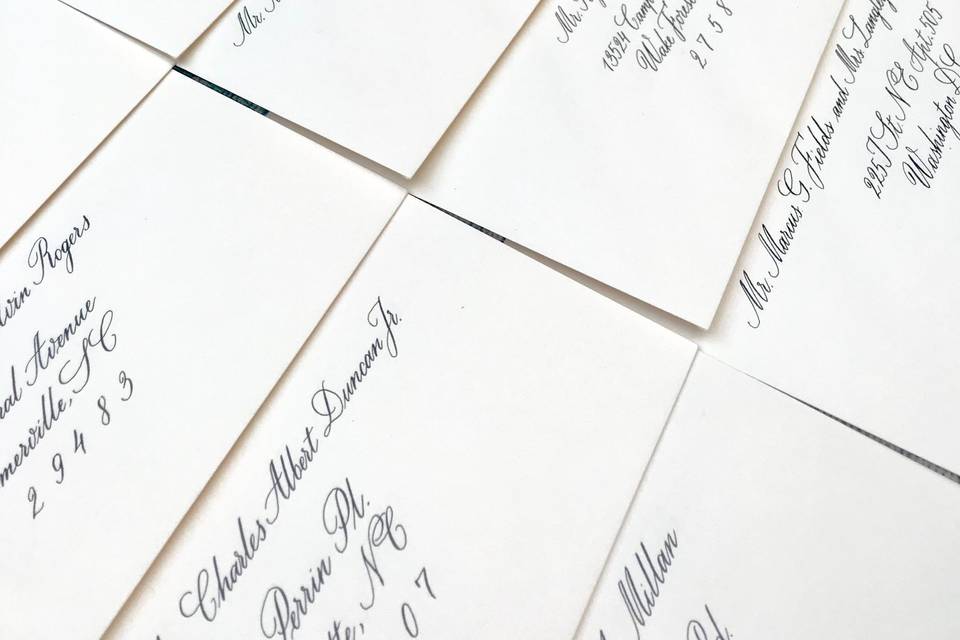 Mr.
Mr.
13524 Camp
Wake Forest
2758
Mr. Marcus G. Fields and Mrs. Langley
225 T St. NE Apt. 505
Washington DC
Rogers
Avenue
SC
29483
Charles Albert Duncan Jr.
Perrin Pl.
NC
07
Millan
Rd.